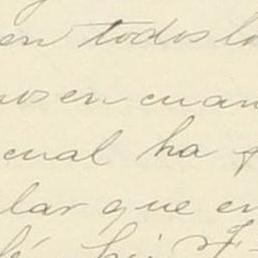 en todos lo
nos en cuan
cual ha
lar que en